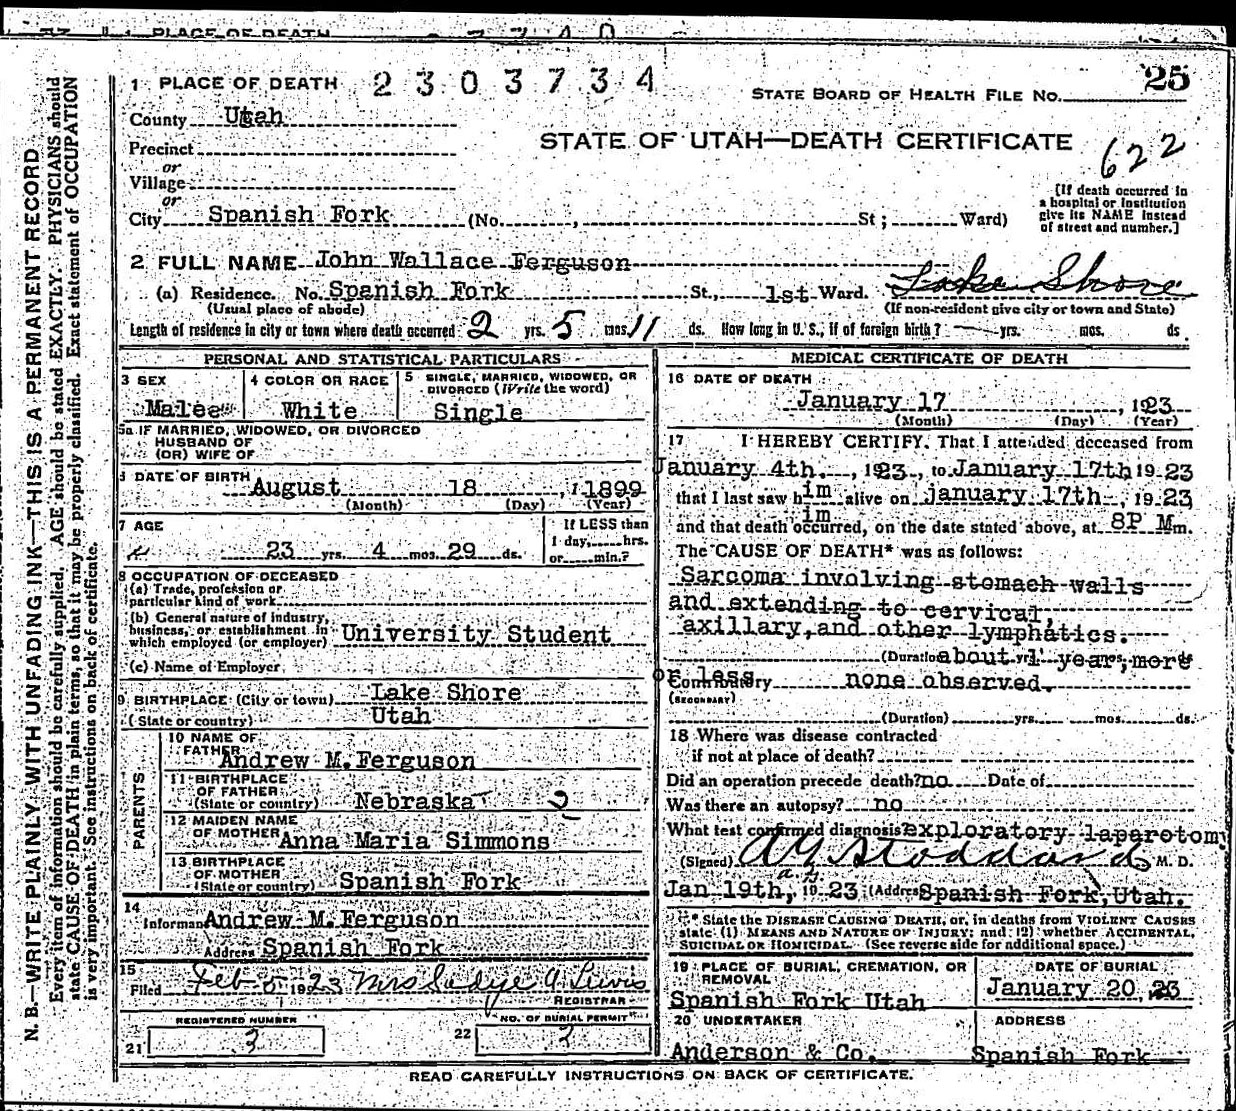 1 PLACE OF DEATH
1 PLACE OF DEATH 2303734
STATE BOARD OF HEALTH FILE No. 25
County Utah
STATE OF UTAH—DEATH CERTIFICATE
622
Precinct
or
Village
or
City Spanish Fork (No. , St; Ward)
[If death occurred in
a hospital or institution
give its NAME instead
of street and number.]
2 FULL NAME John Wallace Ferguson
(a) Residence. No. Spanish Fork St., 1st Ward. Lake Shore
(Usual place of abode) (If non-resident give city or town and State)
Length of residence in city or town where death occurred 2 yrs. 5 mos. 11 ds. How long in U. S., if of foreign birth? yrs. mos. ds.
PERSONAL AND STATISTICAL PARTICULARS
3 SEX
Malee
4 COLOR OR RACE
White
5 SINGLE, MARRIED, WIDOWED, OR
DIVORCED (Write the word)
Single
5a IF MARRIED, WIDOWED, OR DIVORCED
HUSBAND OF
(OR) WIFE OF
6 DATE OF BIRTH August 18, 1899
(Month) (Day) (Year)
7 AGE
23 yrs. 4 mos. 29 ds.
If LESS than
1 day,.....hrs.
or.....min.?
8 OCCUPATION OF DECEASED
(a) Trade, profession or
particular kind of work
(b) General nature of industry,
business, or establishment in
which employed (or employer) University Student
(c) Name of Employer
9 BIRTHPLACE (City or town) Lake Shore
(State or country) Utah
PARENTS
10 NAME OF
FATHER Andrew M. Ferguson
11 BIRTHPLACE
OF FATHER
(State or country) Nebraska
12 MAIDEN NAME
OF MOTHER Anna Maria Simmons
13 BIRTHPLACE
OF MOTHER
(State or country) Spanish Fork
14
Informant Andrew M. Ferguson
Address Spanish Fork
15
Filed Feb 5 1923 Mrs Sadye A. Lewis
REGISTRAR
REGISTERED NUMBER
21 3
NO. OF BURIAL PERMIT
22 2
MEDICAL CERTIFICATE OF DEATH
16 DATE OF DEATH
January 17, 1923
(Month) (Day) (Year)
17 I HEREBY CERTIFY, That I attended deceased from
January 4th., 1923, to January 17th 19 23
that I last saw him alive on january 17th, 19 23
im
and that death occurred, on the date stated above, at 8P M m.
The CAUSE OF DEATH* was as follows:
Sarcoma involving stomach walls
and extending to cervical,
axillary, and other lymphatics.
(Duration about 1 year, more
or less
Contributory none observed.
(SECONDARY)
(Duration) yrs. mos. ds.
18 Where was disease contracted
if not at place of death?
Did an operation precede death? no Date of
Was there an autopsy? no
What test confirmed diagnosis exploratory laparotomy
(Signed) A G Stoddard M. D.
Jan 19th, 19 23 (Address Spanish Fork, Utah.
* State the DISEASE CAUSING DEATH, or, in deaths from VIOLENT CAUSES
state (1) MEANS AND NATURE OF INJURY; and (2) whether ACCIDENTAL,
SUICIDAL OR HOMICIDAL. (See reverse side for additional space.)
19 PLACE OF BURIAL, CREMATION, OR
REMOVAL
Spanish Fork Utah
DATE OF BURIAL
January 20, 23
20 UNDERTAKER
Anderson & Co.
ADDRESS
Spanish Fork
READ CAREFULLY INSTRUCTIONS ON BACK OF CERTIFICATE.
N. B.—WRITE PLAINLY WITH UNFADING INK—THIS IS A PERMANENT RECORD
Every item of information should be carefully supplied. AGE should be stated EXACTLY. PHYSICIANS should
state CAUSE OF DEATH in plain terms, so that it may be properly classified. Exact statement of OCCUPATION
is very important. See instructions on back of certificate.